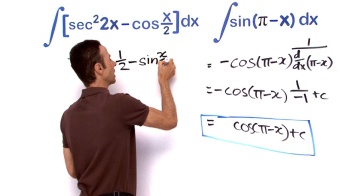 ∫[sec²2x - cos x/2]dx
1/2 - sin x/2
∫sin(π-x) dx
= -cos(π-x) 1/(d/dx(π-x))
= -cos(π-x) 1/-1 + c
= cos(π-x) + c